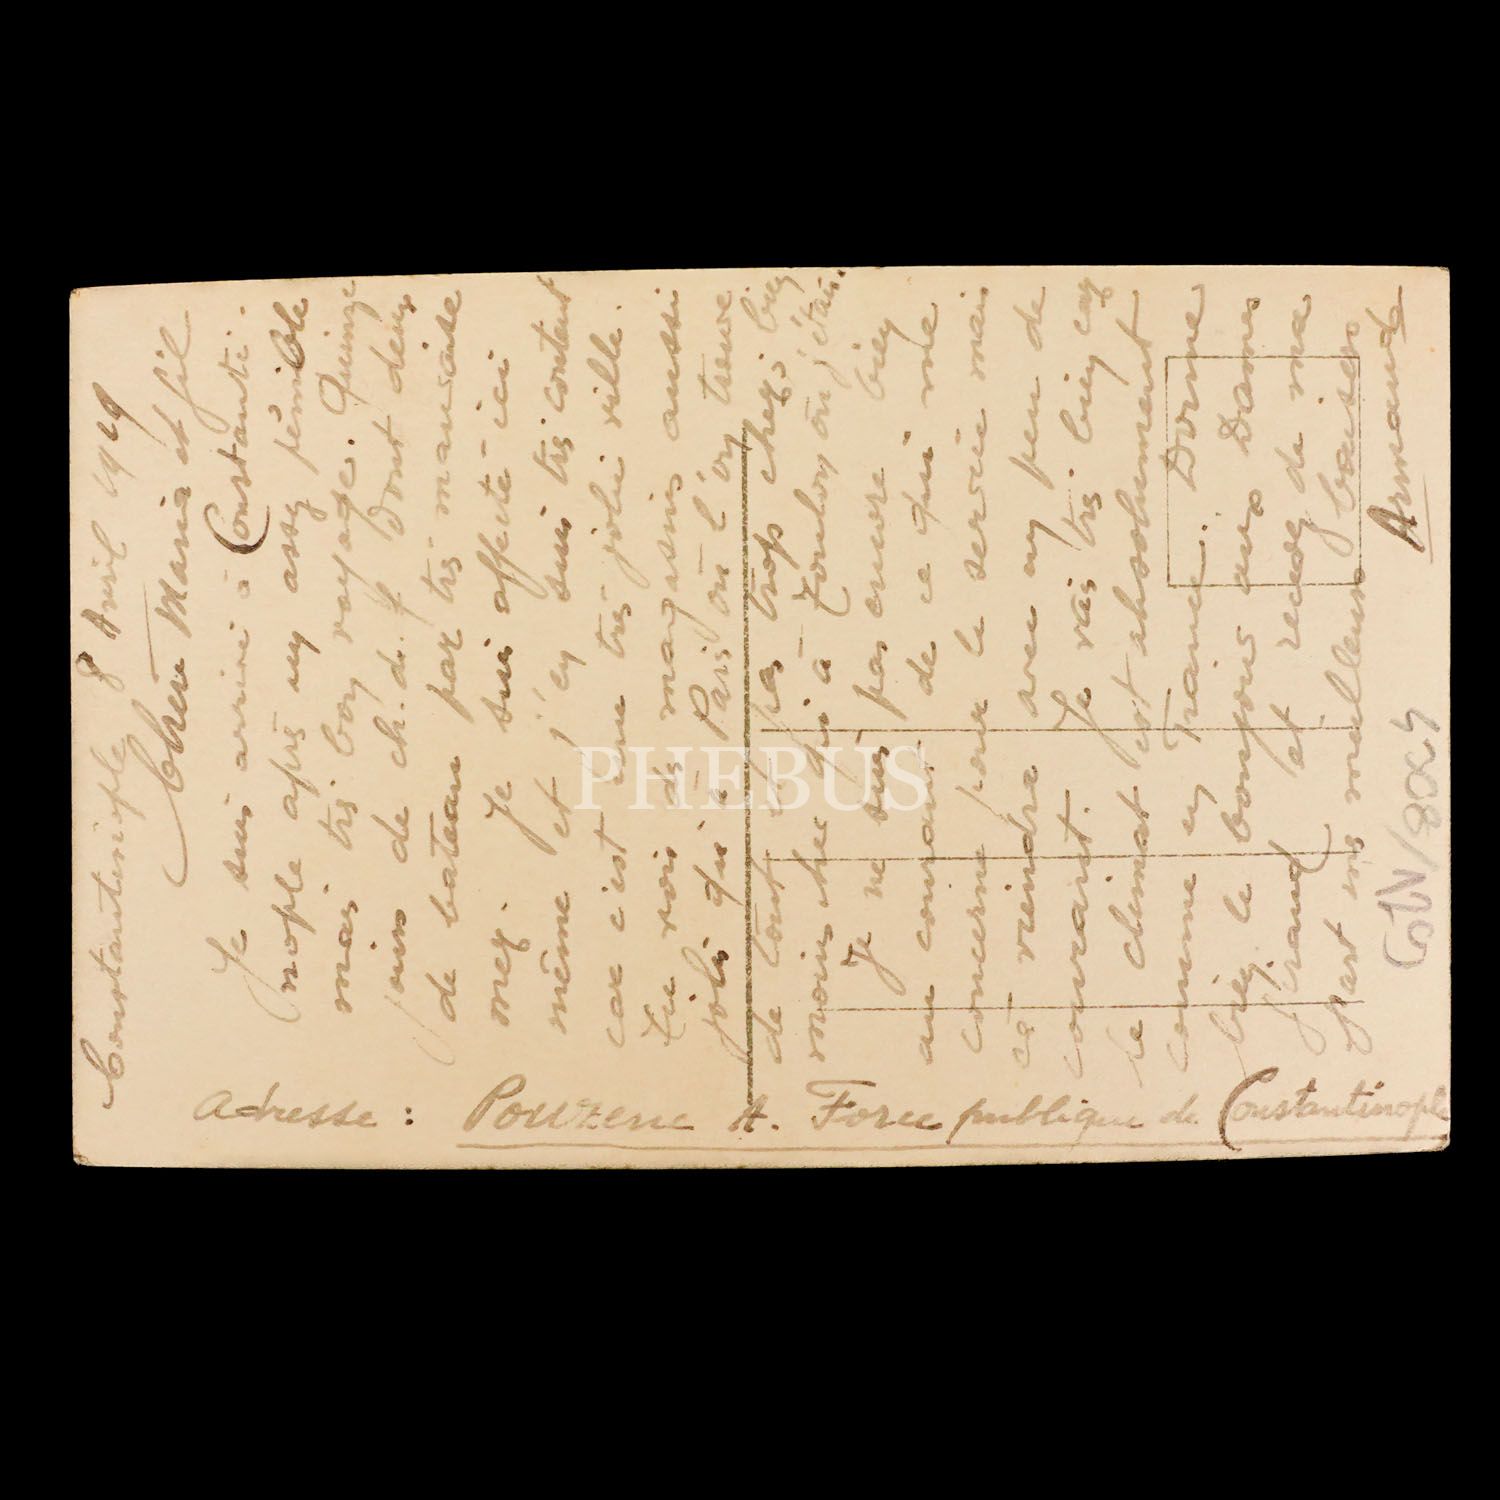 Constantinople 8 Avril 1919
Chère Maria et fil
Je suis arrivé à Constanti-
nople après un assez pénible
mais très bon voyage. Quinze
jours de ch. d. f. dont deux
de bateau par très mauvaise
mer. Je suis affecté ici
même et j'en suis très content
car c'est une très jolie ville.
Tu vois des magasins aussi
jolis qu'à Paris où l'on trouve
de tout et pas trop cher; bien
moins cher qu'à Toulon où j'étais.
Je ne suis pas encore bien
au courant de ce qui me
concerne pour le service mais
ça viendra avec un peu de
courant. Je vais très bien car
le climat est absolument
comme en France. Donne
bien le bonjour aux Dames
Grand et recevez de ma
part vos meilleurs baisers
Armand
Adresse : Pouzene A. Force publique de Constantinople
GN/8024
PHEBUS